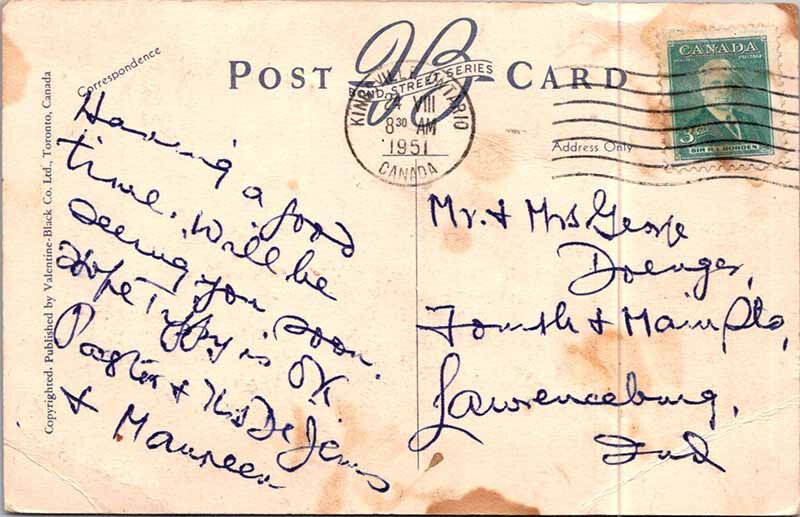 Correspondence
POST CARD
BOND STREET SERIES
KINGSVILLE ONTARIO
24 VIII
8 30 AM
1951
CANADA
CANADA
POSTES POSTAGE
3
SIR R.L. BORDEN
Address Only
Copyrighted. Published by Valentine-Black Co. Ltd., Toronto, Canada
Having a good
time. Will be
seeing you soon.
Hope Tippy is OK
Pastor & Mrs De Jens
& Maureen
Mr. & Mrs George
Doenges,
Fourth & Main Sts,
Lawrenceburg,
Ind